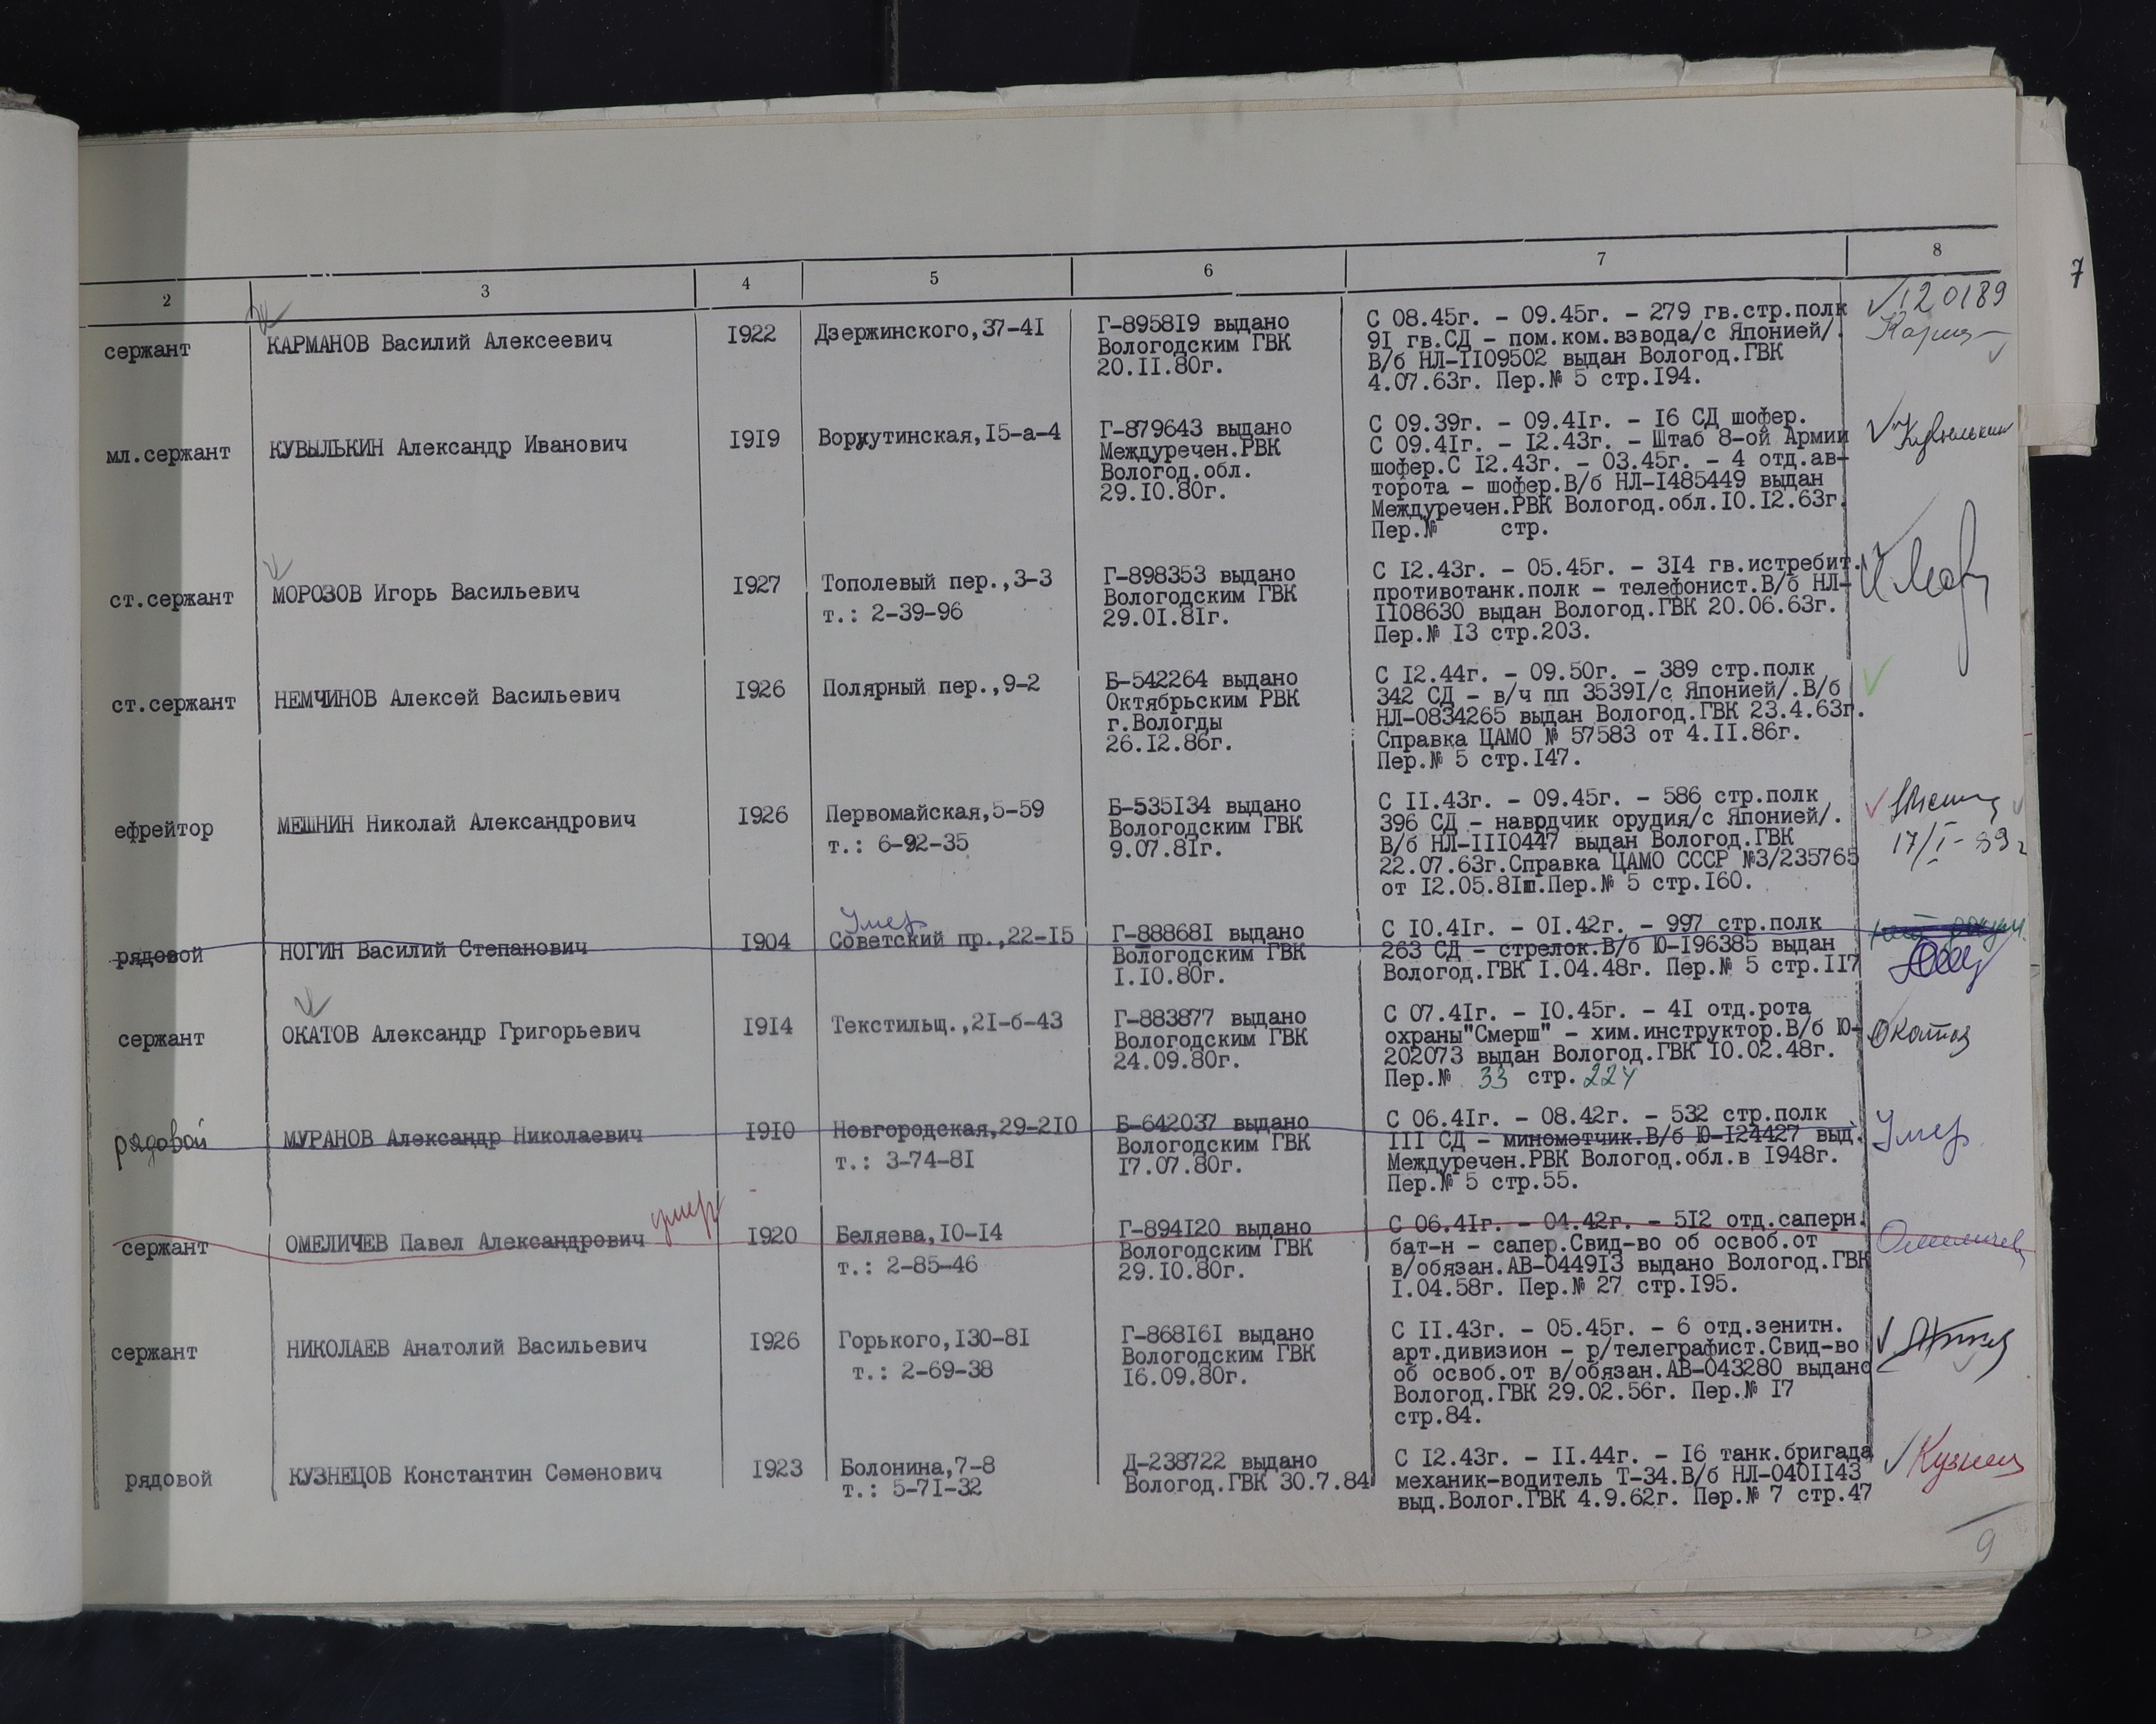 2 3 4 5 6 7 8
7
сержант
КАРМАНОВ Василий Алексеевич
1922
Дзержинского,37-41
Г-895819 выдано
Вологодским ГВК
20.11.80г.
С 08.45г. - 09.45г. - 279 гв.стр.полк
91 гв.СД - пом.ком.взвода/с Японией/.
В/б НЛ-1109502 выдан Вологод.ГВК
4.07.63г. Пер.№ 5 стр.194.
120189
мл.сержант
КУВЫЛЬКИН Александр Иванович
1919
Воркутинская,15-а-4
Г-879643 выдано
Междуречен.РВК
Вологод.обл.
29.10.80г.
С 09.39г. - 09.41г. - 16 СД шофер.
С 09.41г. - 12.43г. - Штаб 8-ой Армии
шофер.С 12.43г. - 03.45г. - 4 отд.ав-
торота - шофер.В/б НЛ-1485449 выдан
Междуречен.РВК Вологод.обл.10.12.63г.
Пер.№ стр.
Кувылькин
ст.сержант
МОРОЗОВ Игорь Васильевич
1927
Тополевый пер.,3-3
т.: 2-39-96
Г-898353 выдано
Вологодским ГВК
29.01.81г.
С 12.43г. - 05.45г. - 314 гв.истребит.
противотанк.полк - телефонист.В/б НЛ-
1108630 выдан Вологод.ГВК 20.06.63г.
Пер.№ 13 стр.203.
ст.сержант
НЕМЧИНОВ Алексей Васильевич
1926
Полярный пер.,9-2
Б-542264 выдано
Октябрьским РВК
г.Вологды
26.12.86г.
С 12.44г. - 09.50г. - 389 стр.полк
342 СД - в/ч пп 35391/с Японией/.В/б
НЛ-0834265 выдан Вологод.ГВК 23.4.63г.
Справка ЦАМО № 57583 от 4.11.86г.
Пер.№ 5 стр.147.
ефрейтор
МЕШНИН Николай Александрович
1926
Первомайская,5-59
т.: 6-92-35
Б-535134 выдано
Вологодским ГВК
9.07.81г.
С 11.43г. - 09.45г. - 586 стр.полк
396 СД - наврдчик орудия/с Японией/.
В/б НЛ-1110447 выдан Вологод.ГВК
22.07.63г.Справка ЦАМО СССР №3/235765
от 12.05.81ш.Пер.№ 5 стр.160.
17/I-89г
рядовой
НОГИН Василий Степанович
1904
Умер
Советский пр.,22-15
Г-888681 выдано
Вологодским ГВК
1.10.80г.
С 10.41г. - 01.42г. - 997 стр.полк
263 СД - стрелок.В/б Ю-196385 выдан
Вологод.ГВК 1.04.48г. Пер.№ 5 стр.117
сержант
ОКАТОВ Александр Григорьевич
1914
Текстильщ.,21-б-43
Г-883877 выдано
Вологодским ГВК
24.09.80г.
С 07.41г. - 10.45г. - 41 отд.рота
охраны"Смерш" - хим.инструктор.В/б Ю-
202073 выдан Вологод.ГВК 10.02.48г.
Пер.№ 33 стр.224
Окатов
рядовой
МУРАНОВ Александр Николаевич
1910
Новгородская,29-210
т.: 3-74-81
Б-642037 выдано
Вологодским ГВК
17.07.80г.
С 06.41г. - 08.42г. - 532 стр.полк
111 СД - минометчик.В/б Ю-124427 выд.
Междуречен.РВК Вологод.обл.в 1948г.
Пер.№ 5 стр.55.
Умер.
сержант
ОМЕЛИЧЕВ Павел Александрович
умер
1920
Беляева,10-14
т.: 2-85-46
Г-894120 выдано
Вологодским ГВК
29.10.80г.
С 06.41г. - 04.42г. - 512 отд.саперн.
бат-н - сапер.Свид-во об освоб.от
в/обязан.АВ-044913 выдано Вологод.ГВК
1.04.58г. Пер.№ 27 стр.195.
Омеличев
сержант
НИКОЛАЕВ Анатолий Васильевич
1926
Горького,130-81
т.: 2-69-38
Г-868161 выдано
Вологодским ГВК
16.09.80г.
С 11.43г. - 05.45г. - 6 отд.зенитн.
арт.дивизион - р/телеграфист.Свид-во
об освоб.от в/обязан.АВ-043280 выдано
Вологод.ГВК 29.02.56г. Пер.№ 17
стр.84.
рядовой
КУЗНЕЦОВ Константин Семенович
1923
Болонина,7-8
т.: 5-71-32
Д-238722 выдано
Вологод.ГВК 30.7.84
С 12.43г. - 11.44г. - 16 танк.бригада
механик-водитель Т-34.В/б НЛ-0401143
выд.Волог.ГВК 4.9.62г. Пер.№ 7 стр.47
Кузнец
9